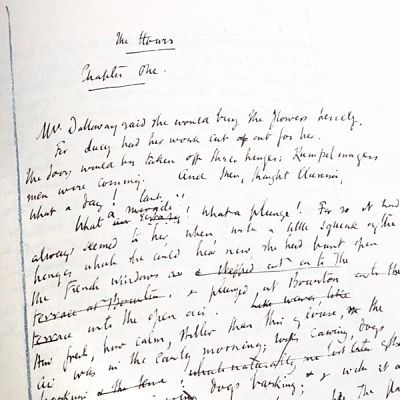 The Hours
Chapter One.
Mrs. Dalloway said she would buy the flowers herself.
For Lucy had her work cut out for her.
The doors would be taken off their hinges; Rumpelmayers
men were coming. And then, thought Clarissa,
What a day!
What a miracle! What a plunge! For so it had
always seemed to her when, with a little squeak of the
hinges which she could hear now she had burst open
the French windows & stepped out on to the
terrace at Bourton, & plunged at Bourton onto the
terrace into the open air. like waves, like
How fresh, how calm, stiller than this of course, the
air was in the early morning; rooks cawing, dogs
barking &
dogs barking; & with a